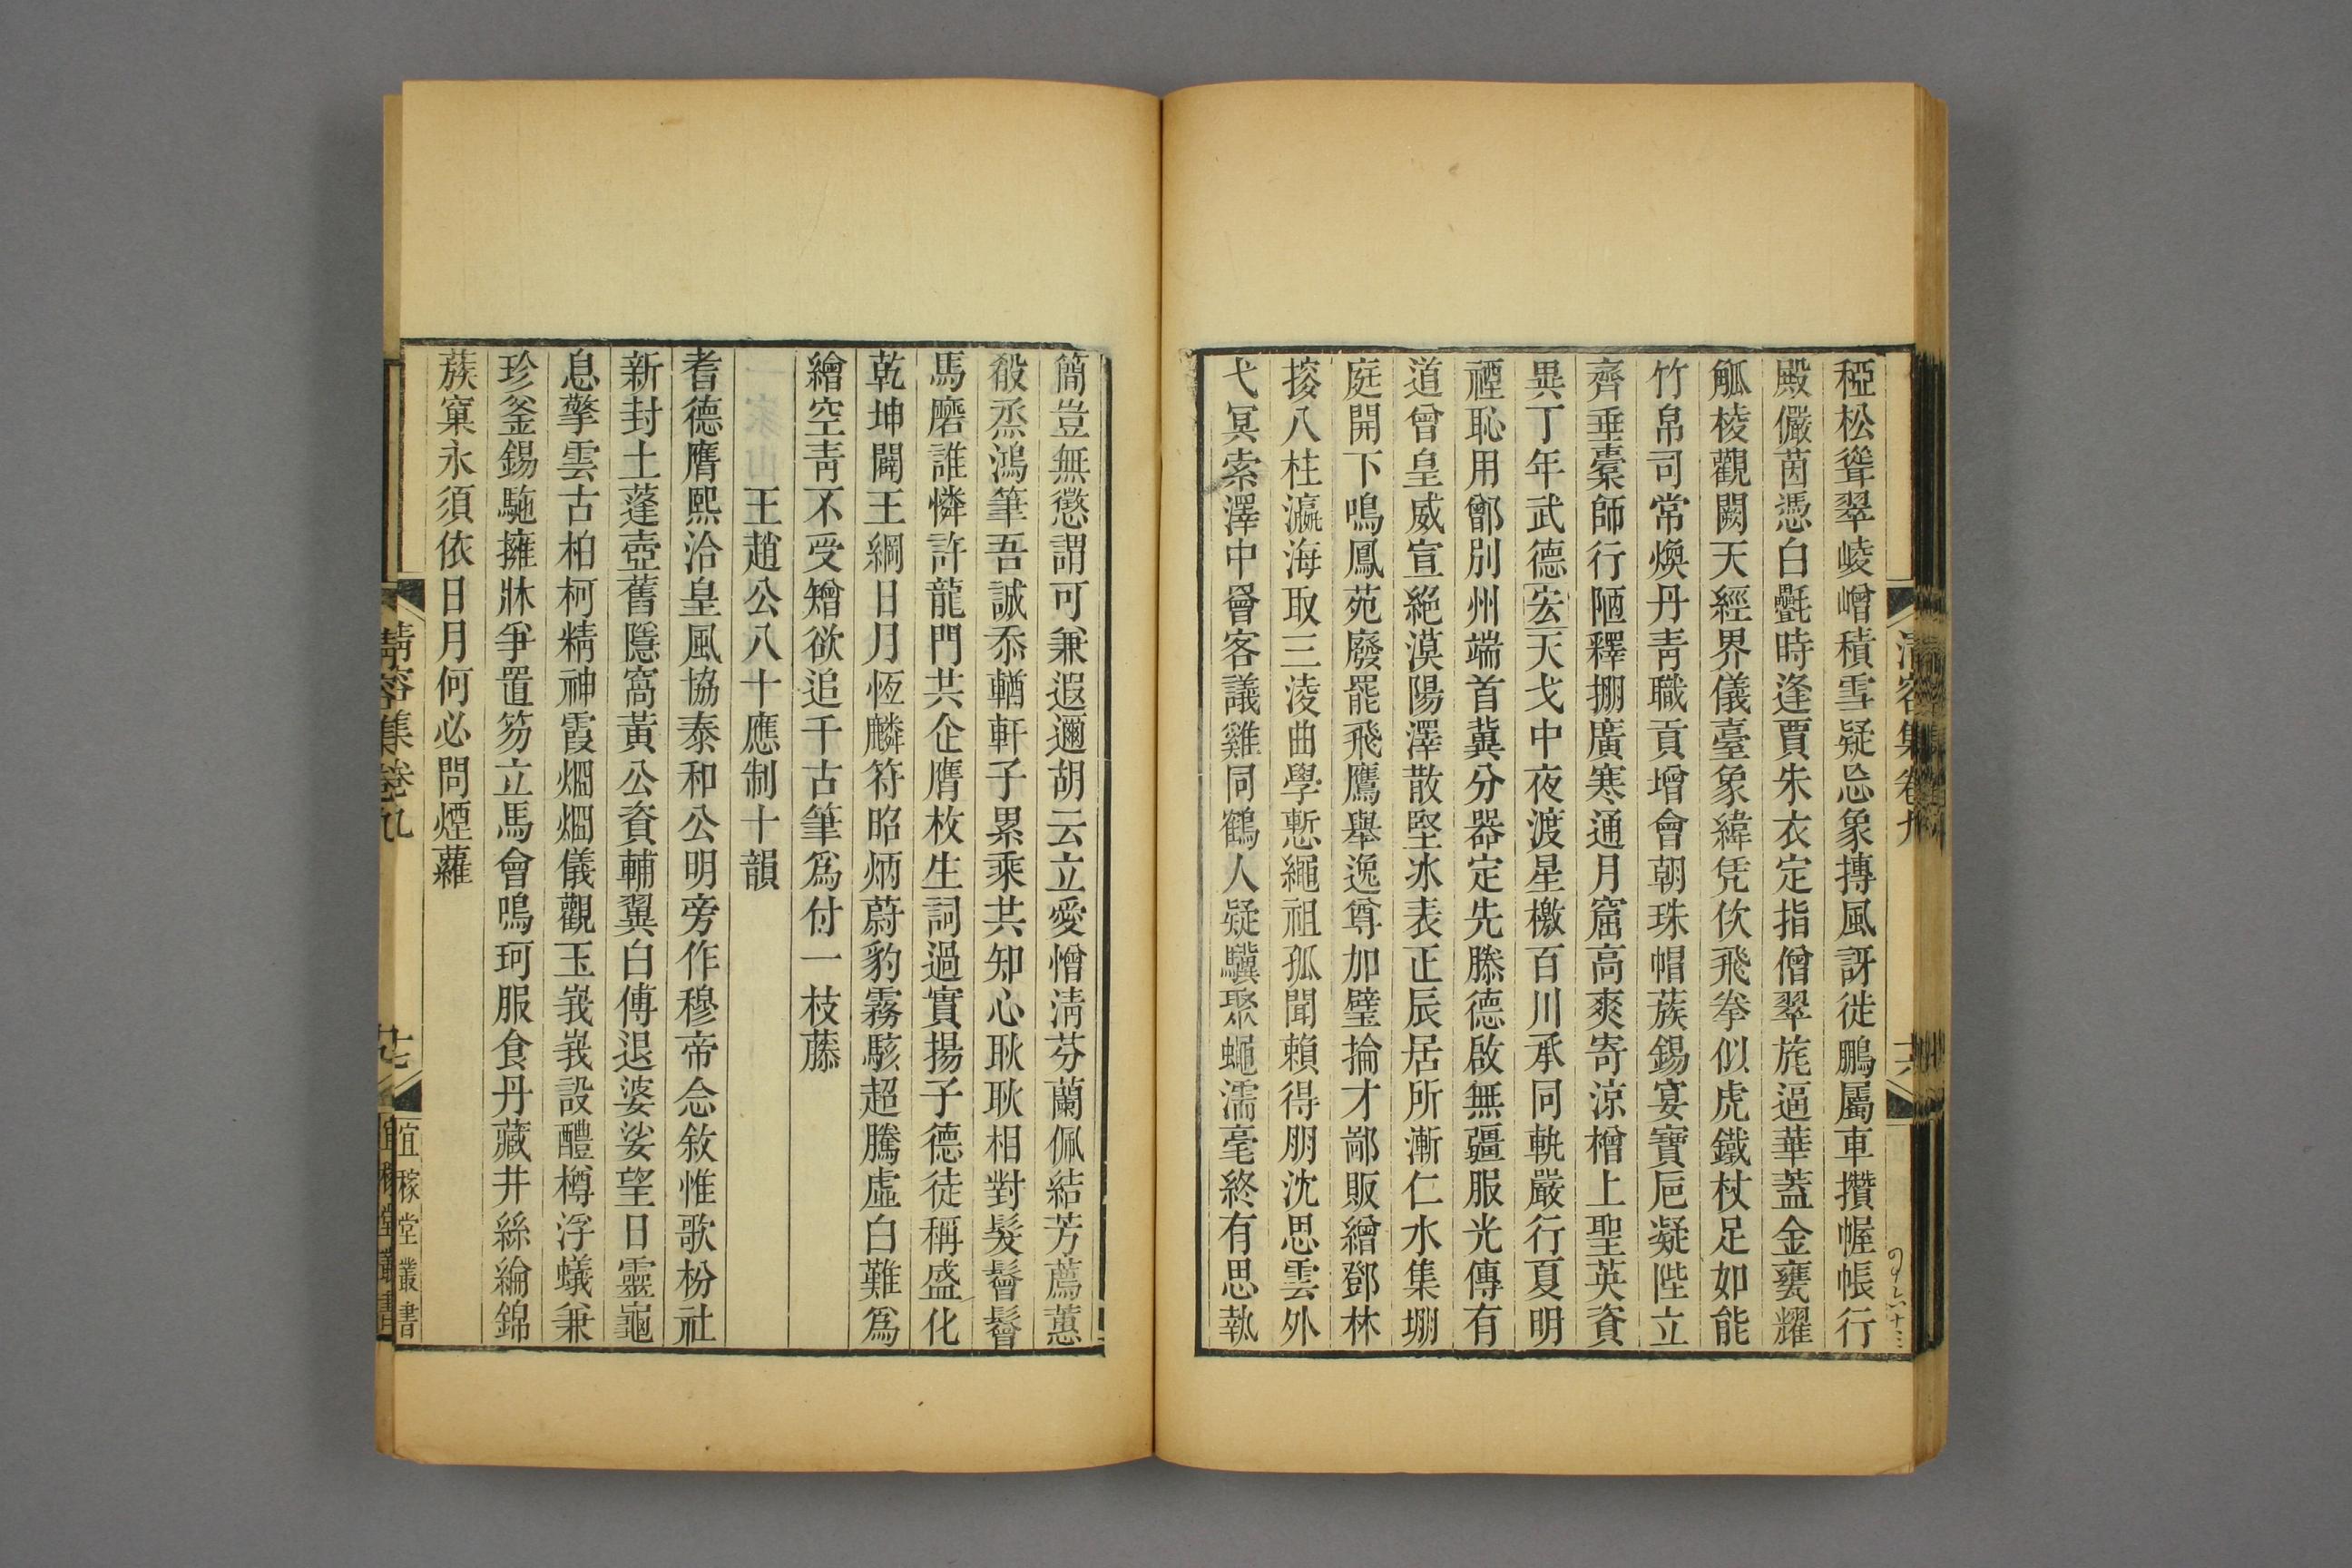 清容集卷九
六
稏松聳翠崚嶒積雪疑忩象摶風訝徙鵬屬車攢幄帳行
殿儼茵憑白㲲時逢賈朱衣定指僧翠旄逼華蓋金甕耀
觚棱觀闕天經界儀臺象緯凭佽飛拳似虎鐵杖足如能
竹帛司常煥丹靑職貢增會朝珠帽蔟錫宴寶巵凝陛立
齊垂櫜師行陋釋掤廣寒通月窟高爽寄涼橧上聖英資
異丁年武德宏天戈中夜渡星檄百川承同軌嚴行夏明
禋恥用鄫別州端首冀分器定先滕德啟無疆服光傳有
道曾皇威宣絕漠陽澤散堅冰表正辰居所漸仁水集堋
庭開下鳴鳳苑廢罷飛鷹舉逸尊加璧掄才鄙販繒鄧林
掞八柱瀛海取三淩曲學慙繩祖孤聞賴得朋沈思雲外
弋冥索澤中罾客議雞同鶴人疑驥聚蠅濡毫終有思執
簡豈無懲謂可兼遐邇胡云立愛憎淸芬蘭佩結芳薦蕙
殽烝鴻筆吾誠忝輶軒子累乘共知心耿耿相對髮鬙鬙
馬磨誰憐許龍門共企膺枚生詞過實揚子德徒稱盛化
乾坤闢王綱日月恆麟符昭炳蔚豹霧駭超騰虛白難爲
繪空靑不受矰欲追千古筆爲付一枝藤
王趙公八十應制十韻
耆德膺熙洽皇風協泰和公明旁作穆帝念敘惟歌枌社
新封土蓬壺舊隱窩黃公資輔翼白傅退婆娑望日靈龜
息擎雲古柏柯精神霞爛爛儀觀玉峩峩設醴樽浮蟻兼
珍釜錫駞擁牀爭置笏立馬會鳴珂服食丹藏井絲綸錦
蔟窠永須依日月何必問煙蘿
淸容集卷九
十七
宜稼堂叢書